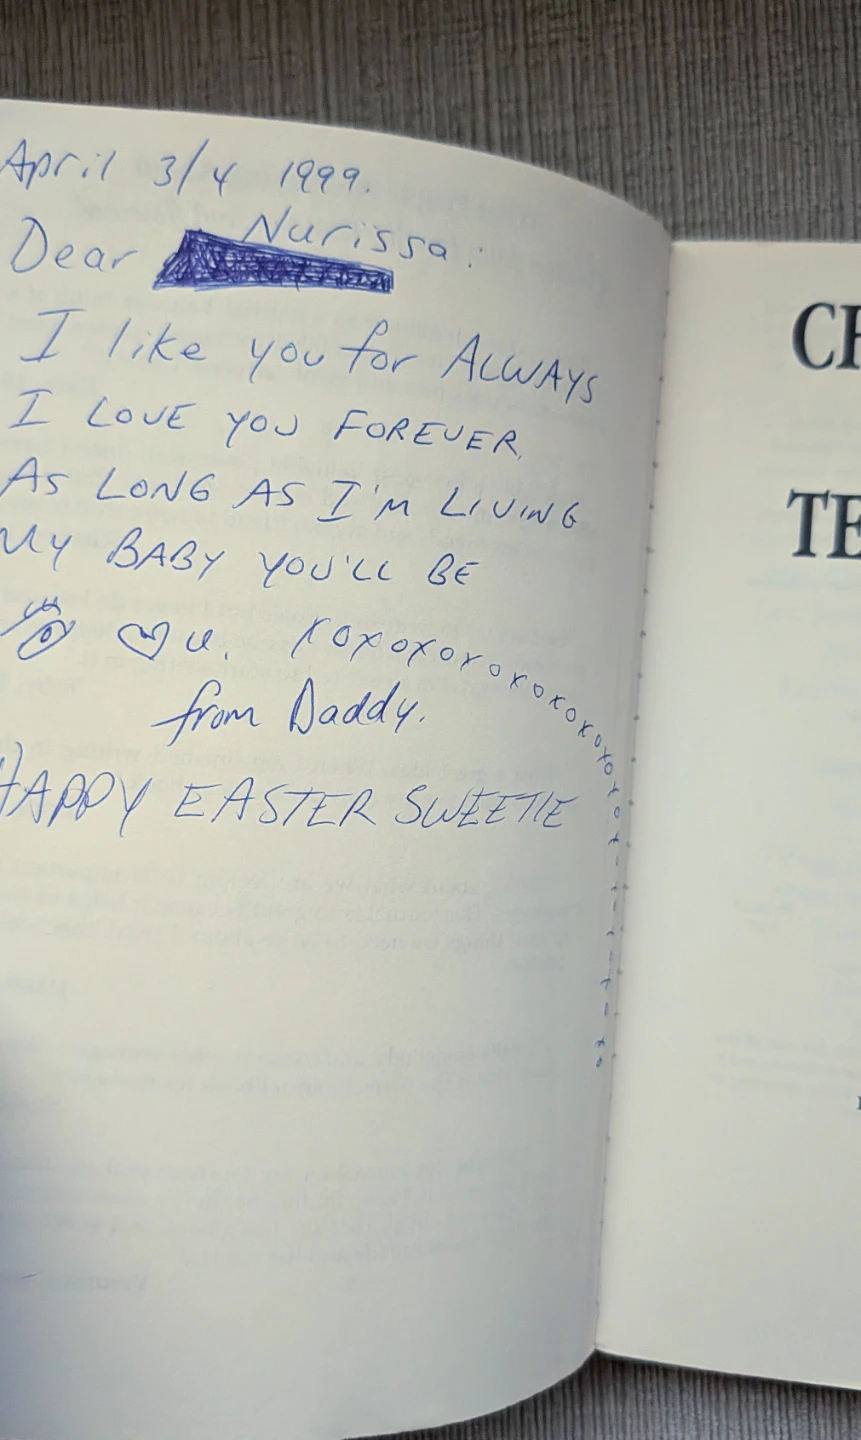 April 3/4 1999.
Dear Nurissa:
I like you for ALWAYS
I LOVE YOU FOREVER.
AS LONG AS I'M LIVING
MY BABY YOU'LL BE
♡ u. xoxoxoxoxoxoxoxoxoxox
from Daddy.
HAPPY EASTER SWEETIE
CH
TE